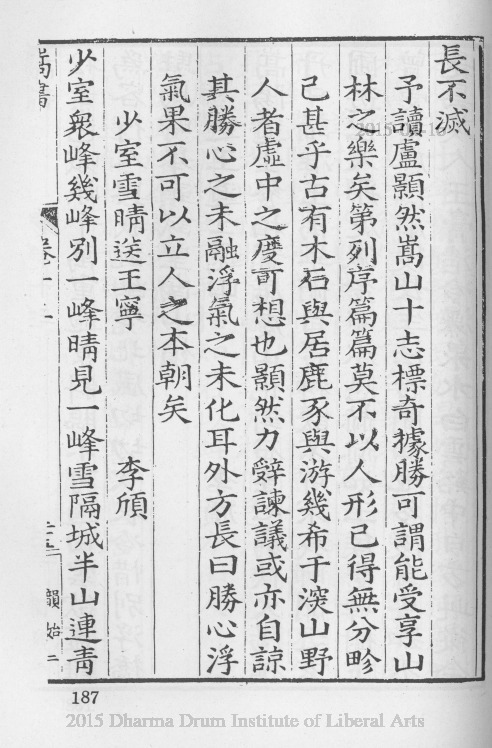 長不滅
予讀盧顥然嵩山十志標奇據勝可謂能受享山
林之樂矣第列序篇篇莫不以人形己得無分畛
己甚乎古有木石與居鹿豕與游幾希于深山野
人者虛中之度可想也顥然力辭諫議或亦自諒
其勝心之未融浮氣之未化耳外方長曰勝心浮
氣果不可以立人之本朝矣
少室雪晴送王寧 李頎
少室衆峰幾峰別一峰晴見一峰雪隔城半山連青
嵩書
卷十二
韻始二
187
2015 Dharma Drum Institute of Liberal Arts